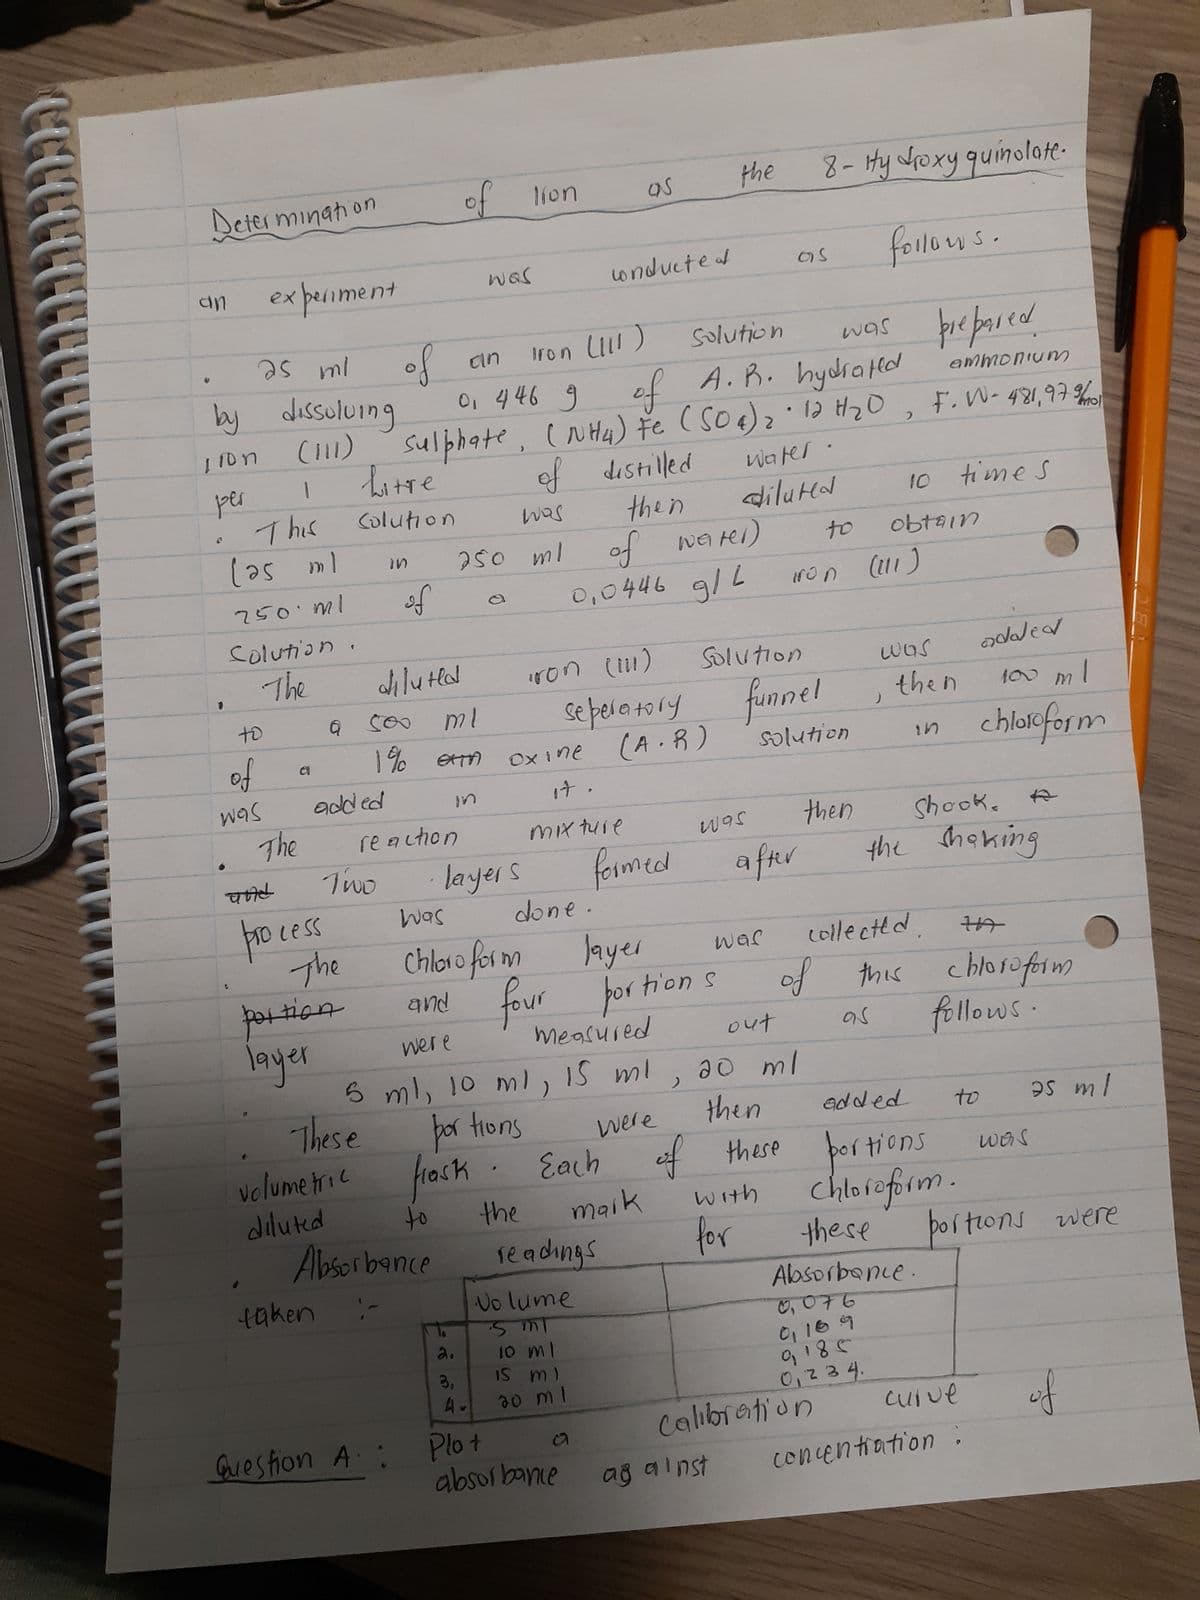 Determination of Iron as the 8-Hydroxyquinolate.
an experiment was conducted as follows.
• 25 ml of an Iron (III) solution was prepared
by dissolving 0,446 g of A.R. hydrated ammonium
iron (III) sulphate, (NH4) Fe (SO4)2 · 12 H2O, F.W- 481,97 g/mol
per 1 Litre of distilled water.
• This solution was then diluted 10 times
(25 ml in 250 ml of water) to obtain
250 ml of a 0,0446 g/L iron (III)
Solution.
• The diluted iron (III) Solution was added
to a 500 ml seperatory funnel, then 100 ml
of a 1% oxine (A.R) solution in chloroform
was added in it.
• The reaction mixture was then shook.
and Two layers formed after the shaking
process was done.
• The Chloroform layer was collected.
portion and four portions of this chloroform
layer were measured out as follows.
• 5 ml, 10 ml, 15 ml, 20 ml
• These portions were then added to 25 ml
volumetric flask. Each of these portions was
diluted to the mark with chloroform.
• Absorbance readings for these portions were
taken :-
Volume Absorbance.
1. 5 ml 0,076
2. 10 ml 0,169
3, 15 ml 0,185
4. 20 ml 0,234.
Question A : Plot a calibration curve of
absorbance against concentration :